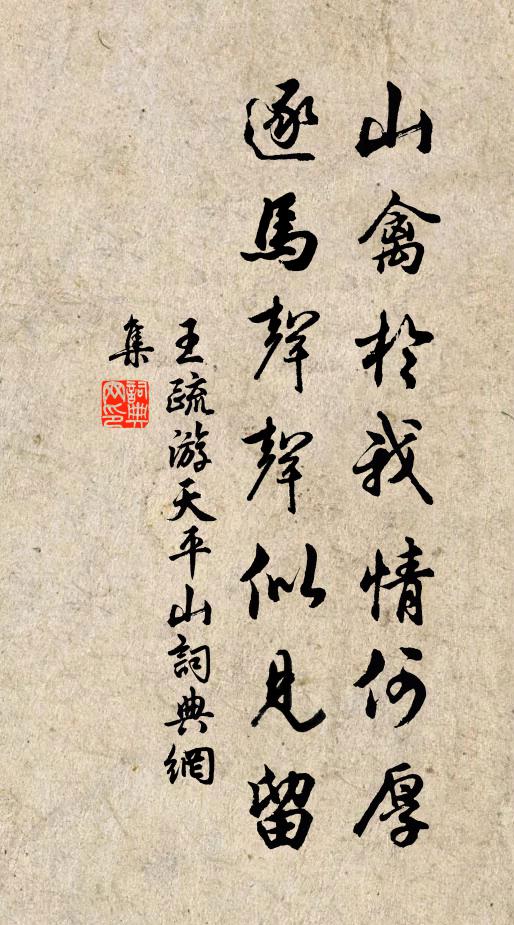 山禽於我情何厚
逐馬聲聲似見留
王疏游天平山詞典網
集
詞典網印